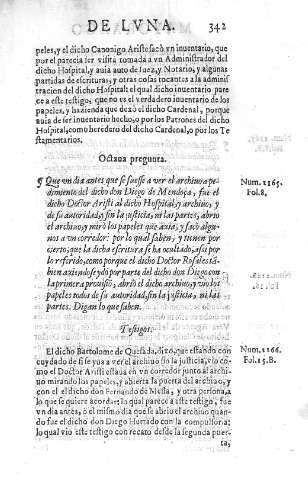 DE LVNA. 342
peles, y el dicho Canonigo Ariste sacò vn inuentario, que
por el parecia ser visita tomada a vn Administrador del
dicho Hospital, y auia auto de Iuez, y Notario, y algunas
partidas de escrituras, y otras cosas tocantes a la adminis
tracion del dicho Hospital: el qual dicho inuentario pare
ce a este testigo, que no es el verdadero inuentario de los
papeles, y hazienda que dexò el dicho Cardenal, porque
auia de ser inuentario hecho, o por los Patrones del dicho
Hospital, como heredero del dicho Cardenal, o por los Te
stamentarios.
Octaua pregunta.
¶ Que vn dia antes que se fuesse a ver el archiuo a pe-
dimiento del dicho don Diego de Mendoça, fue el
dicho Doctor Aristi al dicho Hospital, y archiuo, y
de su autoridad, sin la justicia, ni las partes, abrio
el archiuo, y mirò los papeles que auia, y sacò algu-
nos a vn corredor: por lo qual saben, y tienen por
cierto, que la dicha escritura se ha ocultado, assi por
lo referido, como porque el dicho Doctor Rosales tã-
bien
la primera prouisiõ, abriò el dicho archiuo, y vio los
papeles todos de su autoridad, sin la justicia, ni las
partes. Digan lo que saben.
Num. 1165.
Fol. 8.
Testigos.
El dicho Bartolome de Quesada, dixo, que estando con
cuydado de si se yua a ver el archiuo sin la justicia, vio co
mo el Doctor Aristi estaua en vn corredor junto al archi
uo mirando los papeles, y abierta la puerta del archiuo, y
con el el dicho don Fernando de Messia, y otra persona, a
lo que se quiere acordar; lo qual parece a este testigo, fue
vn dia antes, o el mismo dia que se abrio el archiuo quan-
do fue el dicho don Diego Hurtado con la compulsoria:
lo qual vio este testigo con recato desde la segunda puer-
ta,
Num. 1166.
Fol. 15. B.